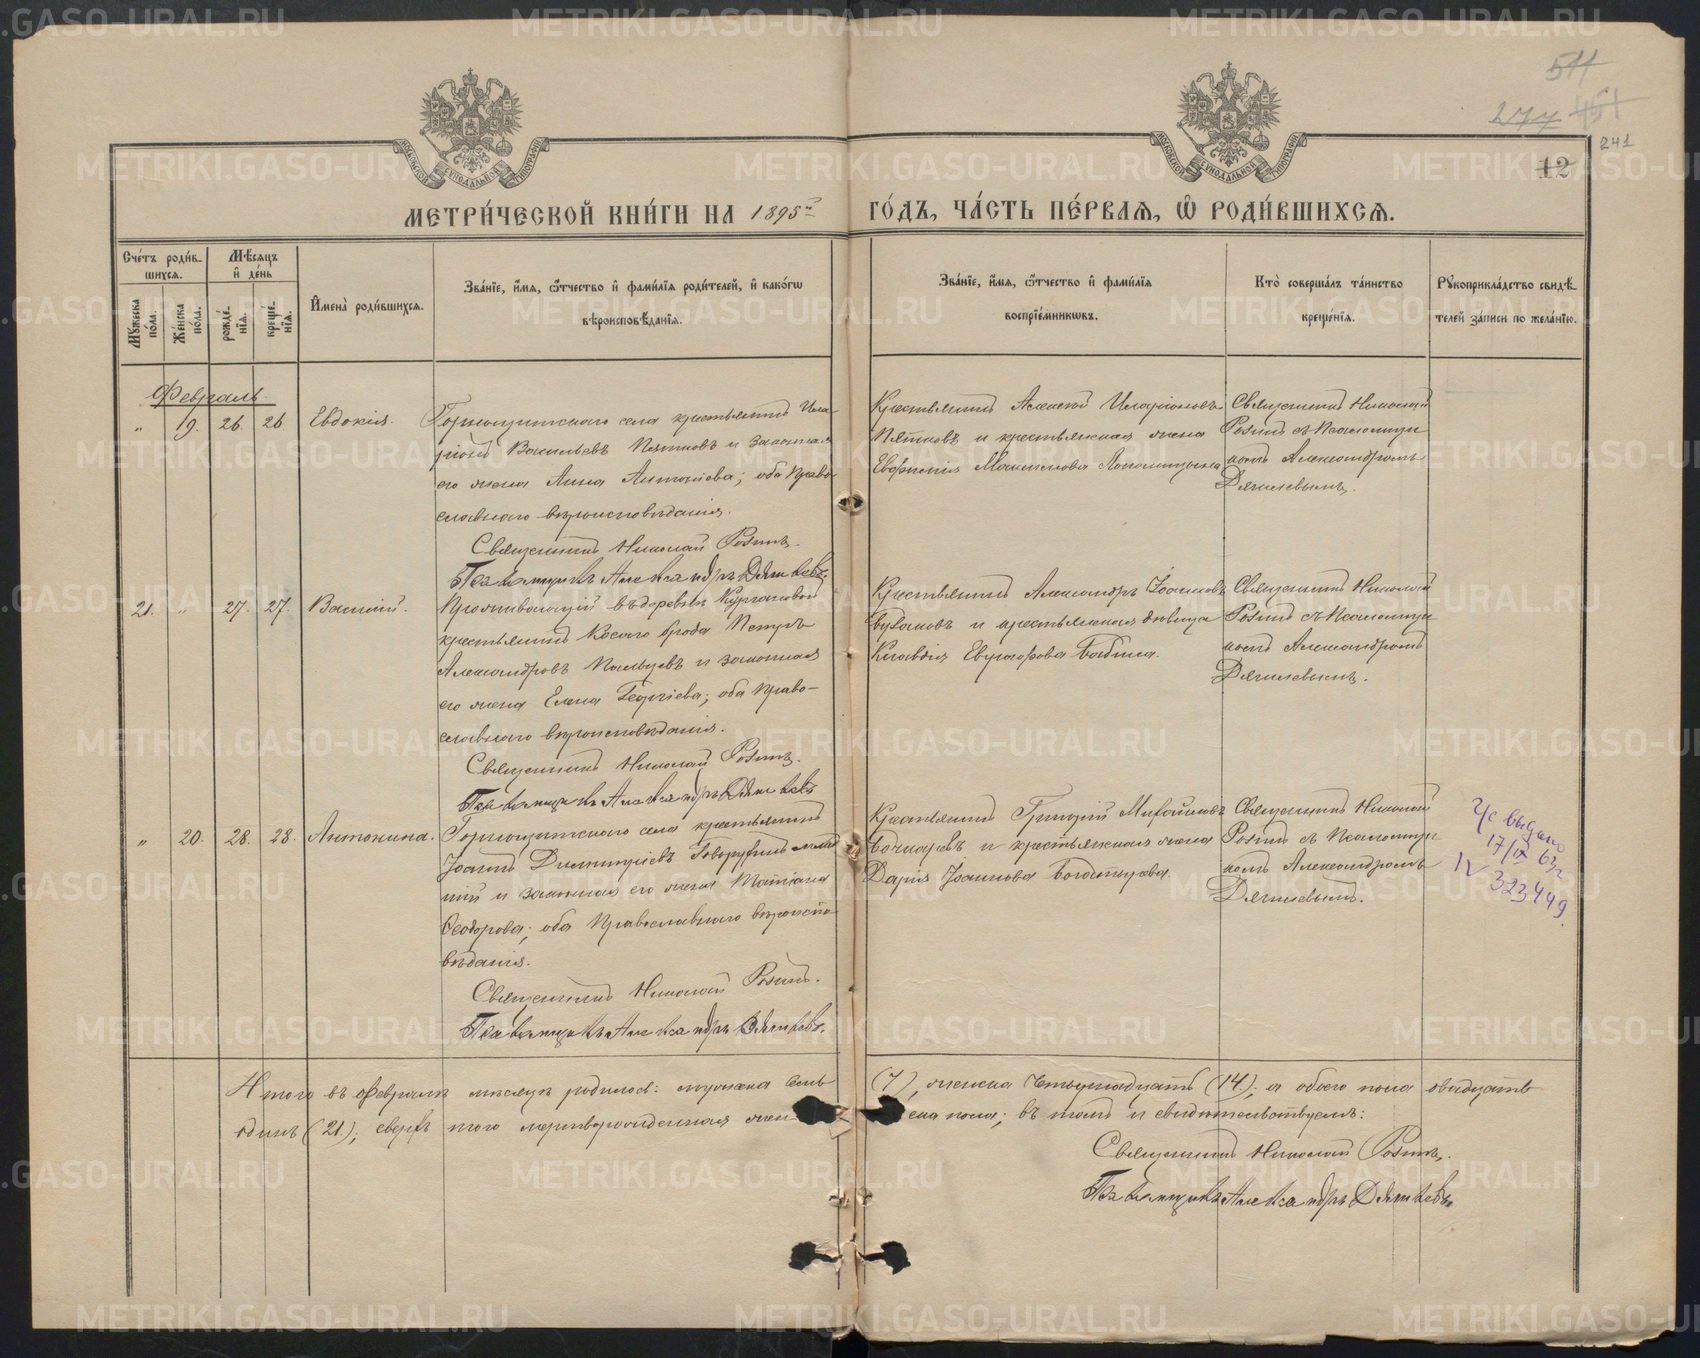 511
277 451
241
12
МОСКОВСКОЙ СѴНОДАЛЬНОЙ ТИПОГРАФІИ
МОСКОВСКОЙ СѴНОДАЛЬНОЙ ТИПОГРАФІИ
МЕТРИ́ЧЕСКОЙ КНИ́ГИ НА 1895й
ГО́ДЪ, ЧА́СТЬ ПЕ́РВАѦ, Ѽ РОДИ́ВШИХСѦ.
Сче́тъ роди́в-
шихсѧ.
Мѣ́сѧцъ
и҆ де́нь
Мꙋ́жеска
пола.
Же́нска
по́ла.
рожде́-
нїѧ.
креще́-
нїѧ.
И҆мена̀ роди́вшихсѧ.
Зва́нїе, и҆́мѧ, ѻ҆́тчество и҆ фамѝлїѧ роди́телей, и҆ како́гѡ
вѣроисповѣ́данїѧ.
Зва́нїе, и҆́мѧ, ѻ҆́тчество и҆ фамѝлїѧ
воспрїе́мникѡвъ.
Кто̀ соверша́лъ та́инство
креще́нїѧ.
Рꙋкоприкла́дство свидѣ́-
телей за́писи по жела́нїю.
Февраль
„ 19. 26. 26. Евдокія.
Горнощитскаго села крестьянинъ Ила-
ріонъ Васильевъ Пятковъ и законная
его жена Анна Антоніева; оба Право-
славнаго вѣроисповѣданія.
Священникъ Николай Розинъ.
Псаломщикъ Александръ Дягилевъ.
Крестьянинъ Алексѣй Иларіоновъ
Пятковъ и крестьянская жена
Евфимія
Священникъ Николай
Розинъ съ Псаломщи-
комъ Александромъ
Дягилевымъ.
21. „ 27. 27. Василій.
Проживающій въ деревнѣ Кургановой
крестьянинъ Косаго брода Петръ
Александровъ Пальцевъ и законная
его жена Елена Георгіева; оба Право-
славнаго вѣроисповѣданія.
Священникъ Николай Розинъ.
Псаломщикъ Александръ Дягилевъ
Крестьянинъ Александръ Іоанновъ
и крестьянская дѣвица
Клавдія Евграфова Бабина.
Священникъ Николай
Розинъ съ Псаломщи-
комъ Александромъ
Дягилевымъ.
„ 20. 28. 28. Антонина.
Горнощитскаго села крестьянинъ
Іоаннъ Димитріевъ Говорухинъ млад-
шій и законная его жена Татіана
Ѳеодорова; оба Православнаго вѣроиспо-
вѣданія.
Священникъ Николай Розинъ.
Псаломщикъ Александръ Дягилевъ.
Крестьянинъ Григорій Михайловъ
Бочкаревъ и крестьянская жена
Дарія Іоаннова
Священникъ Николай
Розинъ съ Псаломщи-
комъ Александромъ
Дягилевымъ.
выдано
17/IX 63г
IV 323449.
Итого въ Февралѣ мѣсяцѣ родилось: мужеска семь
(7), женска четырнадцать (14); а обоего пола двадцать
одинъ (21); сверхъ того мертворожденная жен-
ска пола; въ томъ и свидѣтельствуемъ:
Священникъ Николай Розинъ.
Псаломщикъ Александръ Дягилевъ.
METRIKI.GASO-URAL.RU